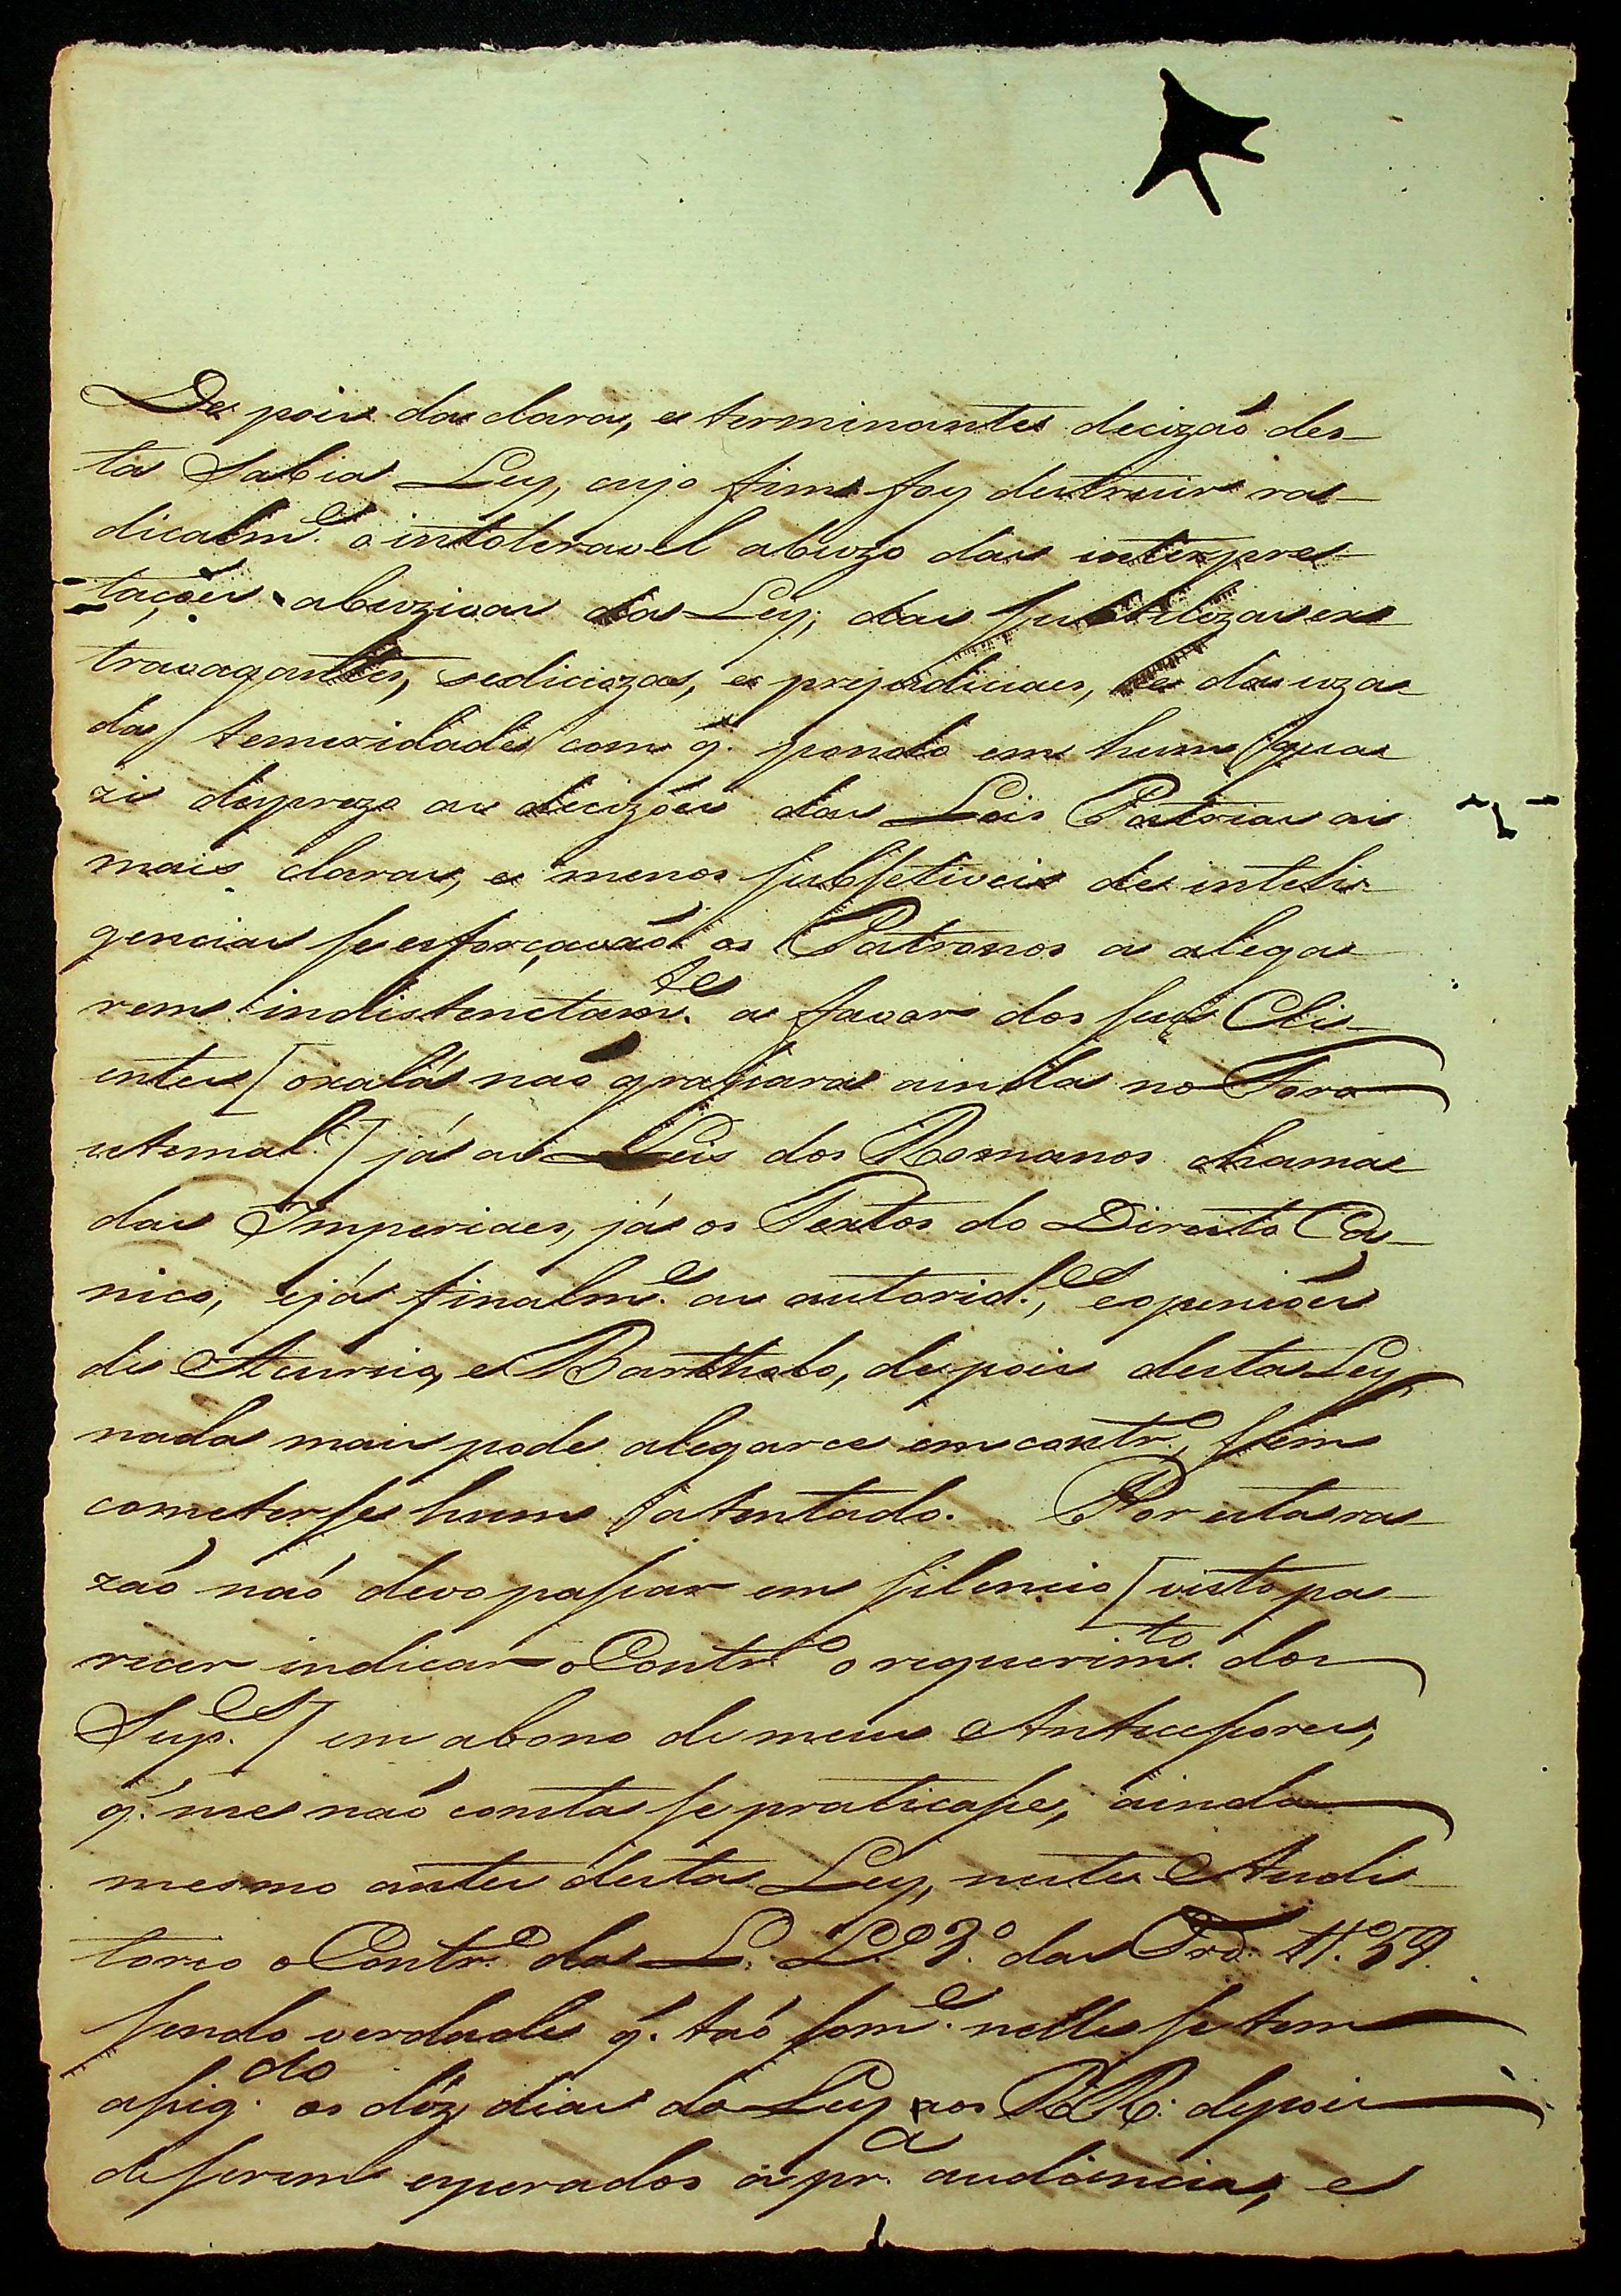 Depois da clara, e terminante decizaõ des-
ta Sabia Ley, cujo fim foy destruir ra-
dicalm.e o intoleravel abuzo das interpre-
-taçoẽs abuzivas da Ley; das subtilezas ex-
travagantes, sediciozas, e prejudiciaes, e da uza-
da temeridade com q̃. pondo em hum quа-
zi desprezo as decizoẽs das Leis Patrias as
mais claras, e menos subsetiveis de inteli-
gencias se esforçavaõ os Patronos a alega-
rem indistenctam.te a favor dos seus Cli-
entes [oxalá naõ grassara ainda no Foro
este mal!] já as Leis dos Romanos chama-
das Imperiaes, já os Textos do Direito Ca-
nico, e já finalm.e as autorid.es, e openioẽs
de Acursio, e Bartholo, depois desta Ley
nada mais pode alegarce em contr.o, sem
cometerse hum atentado. Por esta ra-
zaõ naõ devo passar em silencio [visto pa-
recer indicar o Contr.o o requerim.to dos
Sup.es] em abono de meus Antecessores,
q̃. me naõ consta se praticasse, ainda
mesmo antes desta Ley, neste Audi-
torio o Contr.o da L. L.o 3.o da Ord. tt.o 59.
sendo verdade q̃. taõ som.e nelle se tem
assig.do os déz dias da Ley aos RR. depois
de serem esperados á pr.a audiencia, e